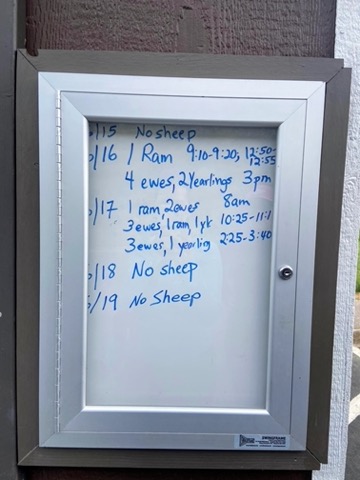 /15 No sheep
/16 1 Ram 9:10-9:20, 12:50-12:55
4 ewes, 2 Yearlings 3pm
/17 1 ram, 2 ewes 8am
3 ewes, 1 ram, 1 yr 10:25-11:1
3 ewes, 1 yearling 2:25-3:40
/18 No sheep
6/19 No Sheep